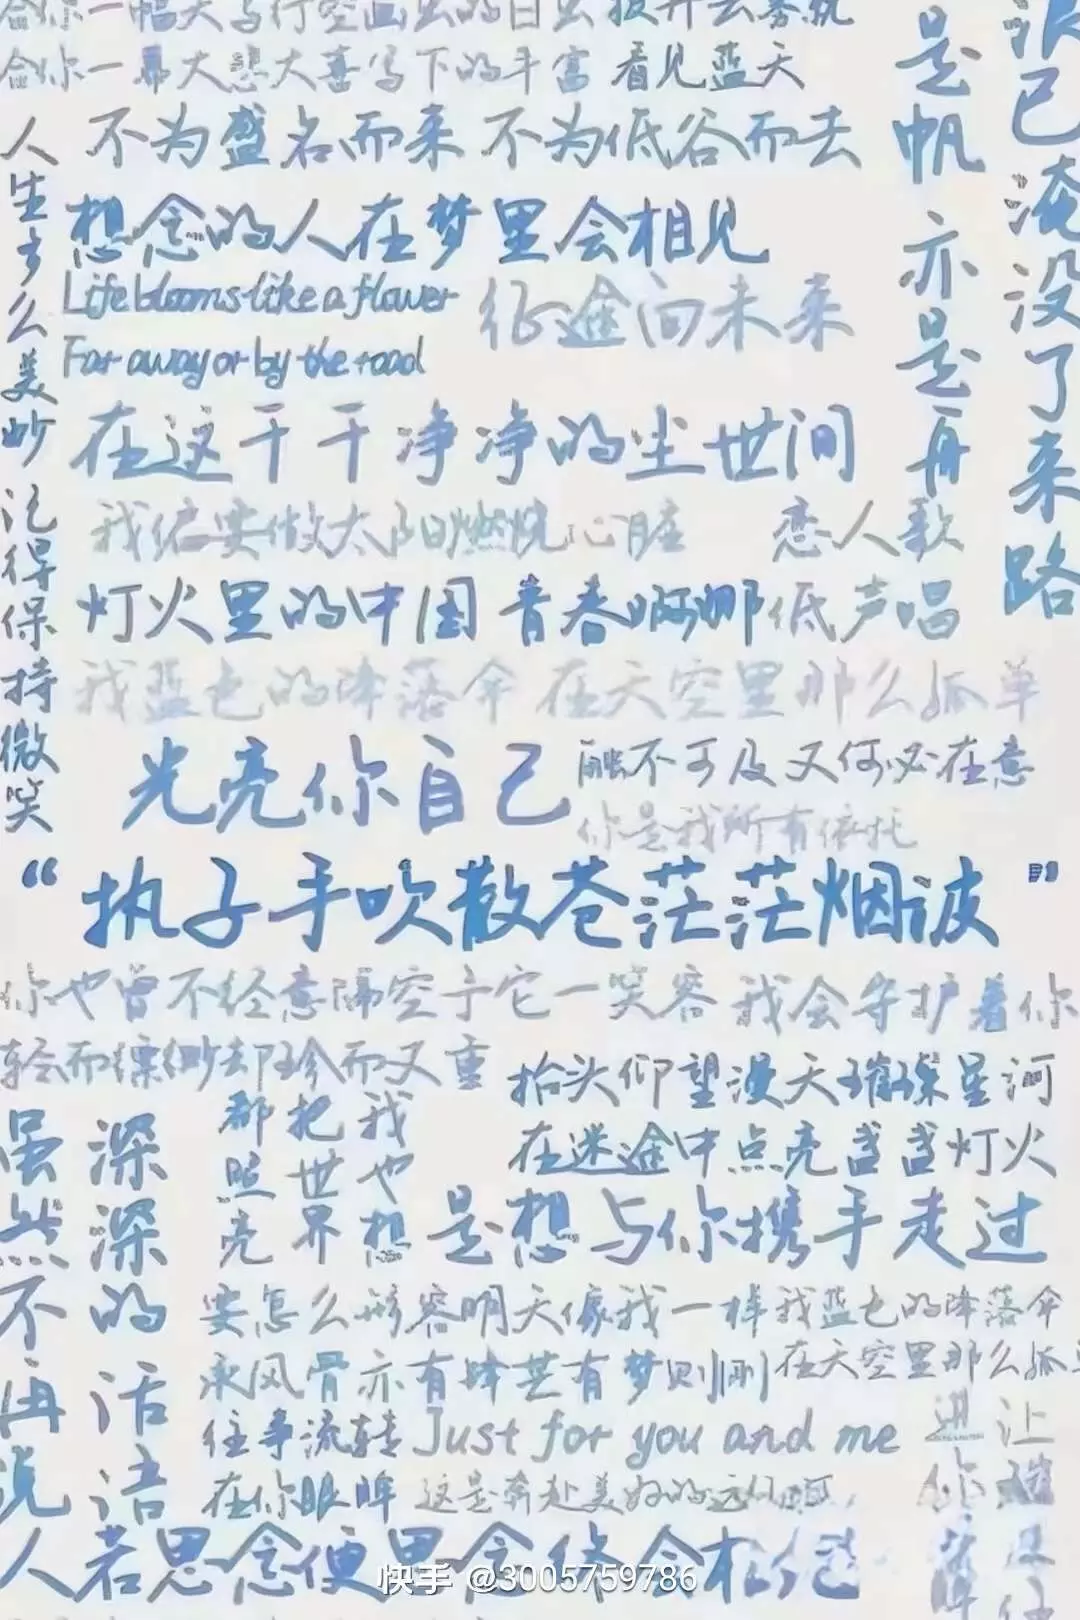 给你一幅天马行空画出的日出 拨开云雾就
给你一幕大悲大喜写下的丰富 看见蓝天
不为盛名而来 不为低谷而去
想念的人在梦里会相见
Life blooms like a flower
Far away or by the road
征途向未来
在这干干净净的尘世间
我偏要做太阳燃烧心脏
恋人歌
灯火里的中国 青春婀娜
低声唱
我蓝色的降落伞 在天空里那么孤单
光亮你自己
触不可及又何必在意
你是我所有依托
“执子手吹散苍茫茫烟波”
你也曾不经意隔空予它一笑容
我会守护着你
轻而缥缈却珍而又重
抬头仰望漫天璀璨星河
在迷途中点亮盏盏灯火
是想与你携手走过
要怎么形容明天像我一样
我蓝色的降落伞
乘风骨亦有锋芒有梦则刚
在天空里那么孤单
往事流转
在你眼眸
Just for you and me
这是奔赴美好的远
人若思念便里念终会相
人生多么美妙 记得保持微笑
是帆 亦是再
泪已淹没了来路
虽然不再说
深深的话语
都照亮
把世界
我也想
快手 @3005759786